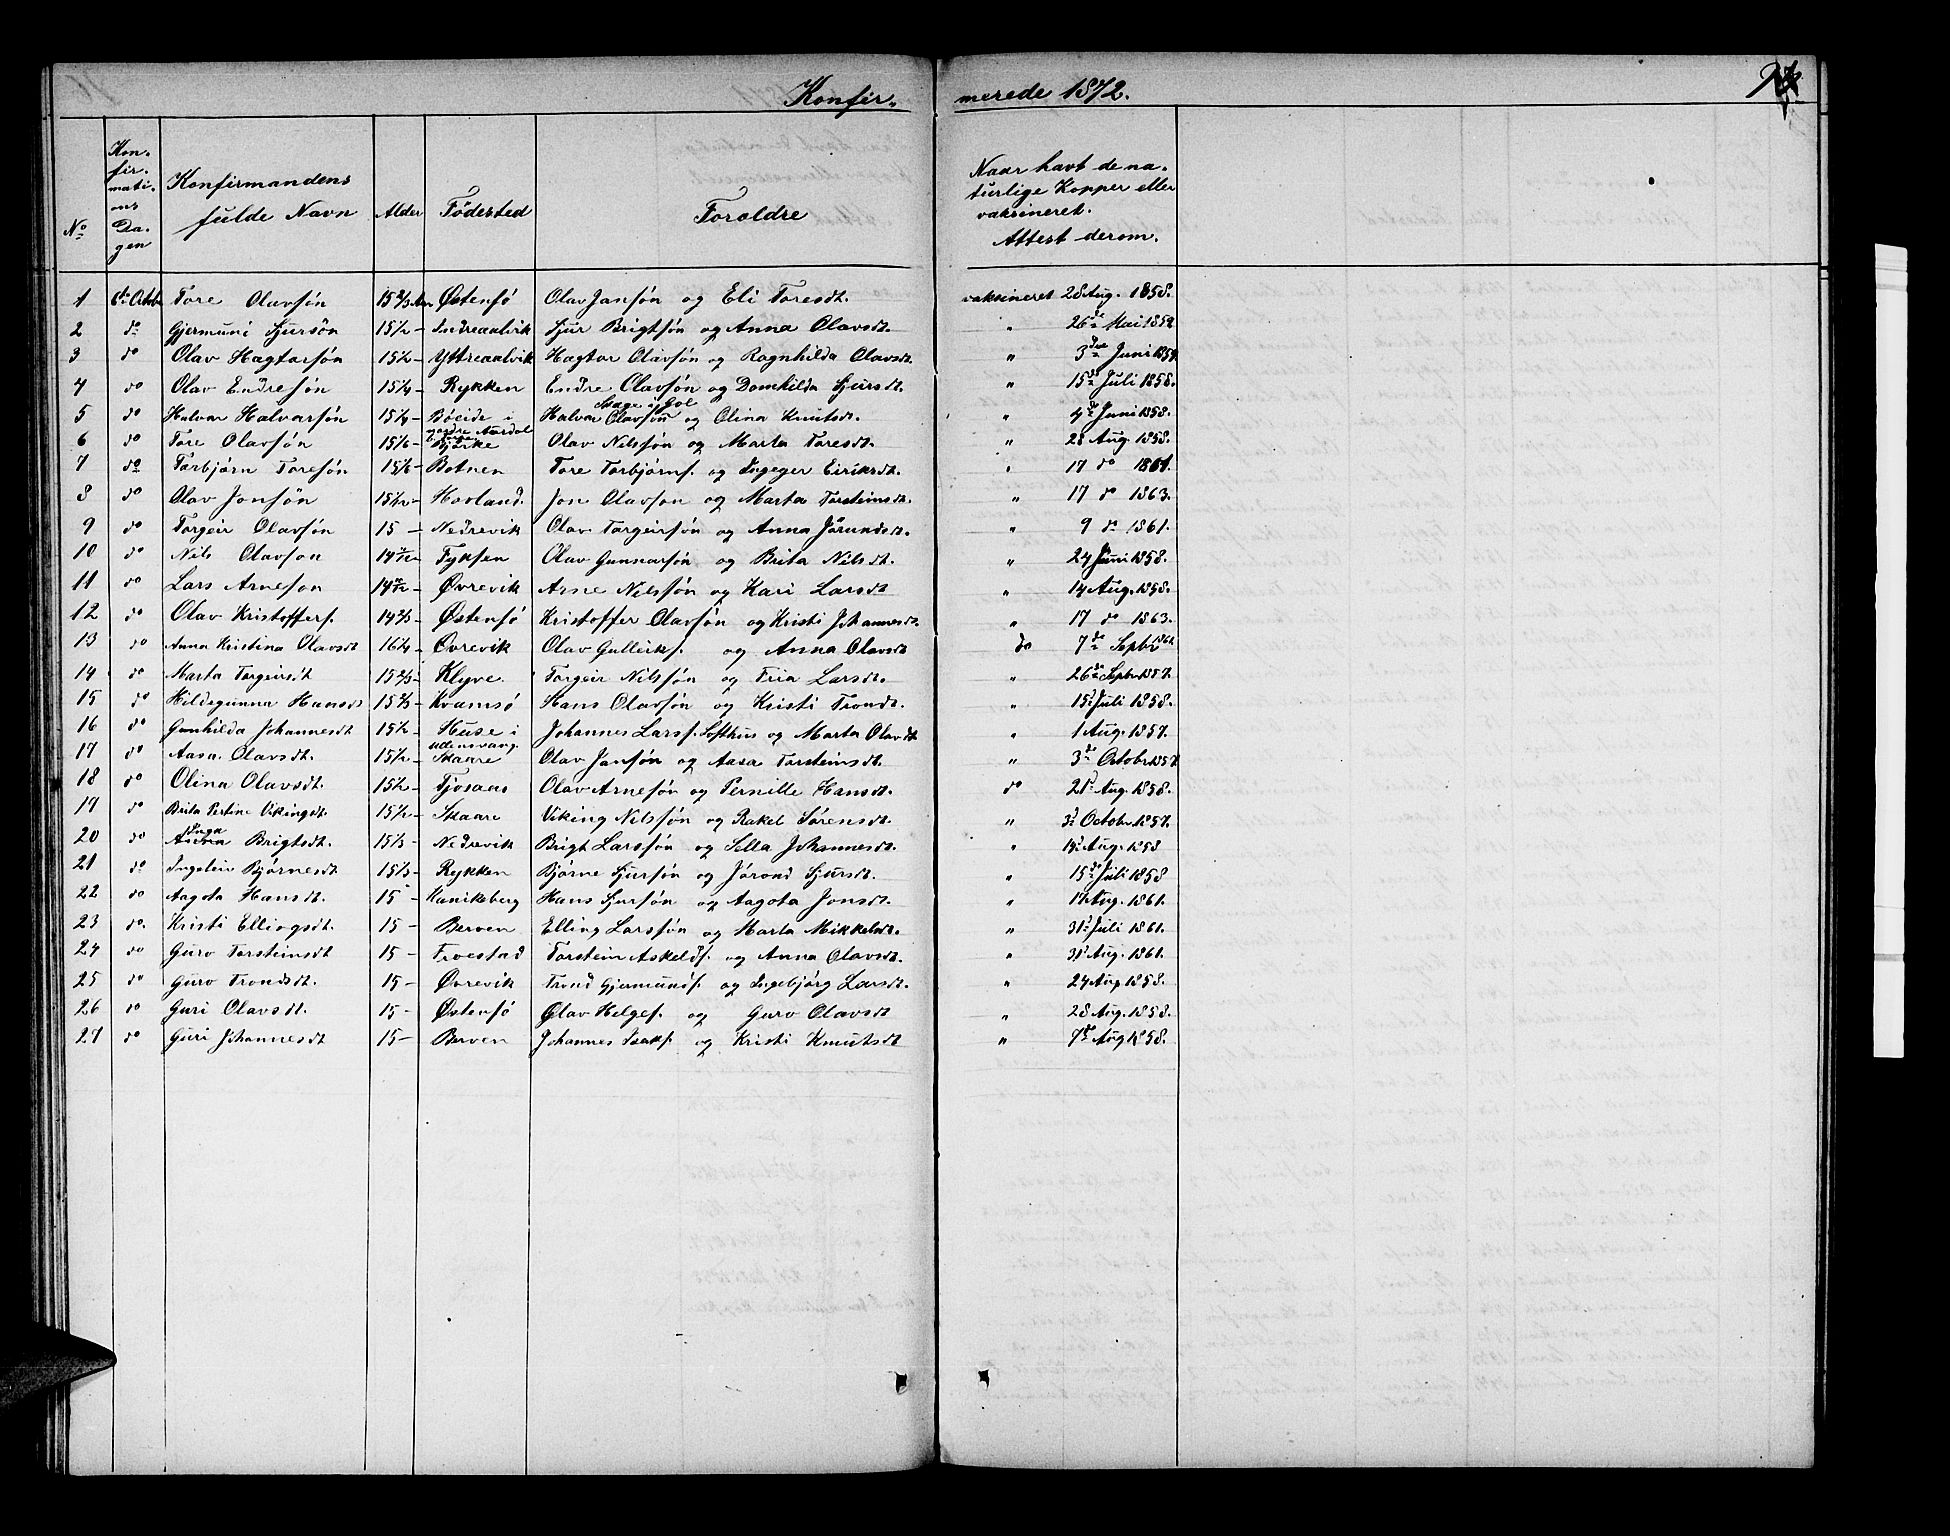 Konfir- merede 1872.
No | Konfirmations Dagen | Konfirmandens fulde Navn | Alder | Födested | Foroldre | Naar havt de naturlige Kopper eller vaksineret. Attest derom.
1 6te Octob Tore Olavsón 15 2/3 Østensó Olav Jansón og Eli Toresdt. vaksineret 28 Aug. 1858.
2 do Gjermund Sjursón 15 1/2 - Indreaalvik Sjur Brigtsón og Anna Olavsdt. " 26de Mai 1859
3 do Olav Hægtorsón 15 1/2 - Yttreaalvik Hægtor Olavsón og Ragnhilda Olavsdt " 3die Juni 1859
4 do Olav Endresón 15 1/4 - Rykken Endre Olavsón og Domhilda Sjursdt. " 15de Juli 1858.
5 do Halvar Halvarsón 15 1/4 - Böeide i nordre Aurdal Halvar Olavsón Skage i Gol og Olina Knutsdt. " 4de Juni 1858.
6 do Tore Olavsón 15 1/6 - Bjórke Olav Nilssón og Marta Toresdt. " 28 Aug. 1858.
7 do Torbjórn Toresón 15 1/6 - Botnen Tore Torbjórns. og Ingeger Eiriksdt. " 17 do 1861.
8 do Olav Jonsón 15 1/12 - Hovland. Jon Olavson og Marta Torsteinsdt. " 17 do 1863.
9 do Torgeir Olavsón 15 - Nedrevik Olav Torgeirsón og Anna Jórundsdt. " 9 do 1861.
10 do Nils Olavson 14 - Fyksen Olav Gunnarsón og Brita Nilsdt. " 24 Juni 1858.
11 do Lars Arneson 14 - Øvrevik Arne Nilssón og Kari Larsdt " 14 Aug. 1858.
12 do Olav Kristoffers. 14 2/3 - Østensó Kristoffer Olavsón og Kristi Johannesdt. " 17 do 1863.
13 do Anna Kristina Olavsdt 16 1/4 - Øvrevik Olav Gulleiks. og Anna Olavsdt do 7de Septbr 1862
14 do Marta Torgeirsdt 15 2/3 - Klyve. Torgeir Nilssón og Tria Larsdt. " 26de Septbr 1857.
15 do Hildegunna Hansdt 15 2/3 - Kvamsó Hans Olavsón og Kristi Tronds. " 15d Juli 1858.
16 do Gunhilda Johannesdt 15 1/2 - Huse i udensvang. Johannes Larss. Lofthus og Marta Olavdt " 1 Aug. 1857.
17 do Aasa Olavsdt. 15 1/2 - Skaare Olav Jonsón og Aasa Torsteinsdt. " 3de Octobr 1857
18 do Olina Olavsdt. 15 1/2 - Tjosaas Olav Arnesón og Pernille Hansdt. do 21d Aug. 1858.
19 do Brita Pertine Vikingsdt. 15 1/2 - Skaare Viking Nilssón og Rakel Sórensdt. " 3d Octobr. 1857.
20 do Inga Brigtsdt. 15 1/3 - Nedrevik Brigt Larssón og Sella Johannesdt. " 14d Aug. 1858
21 do Ingelein Bjórnesdt 15 1/3 - Rykken Bjórne Sjursón og Jórond Sjursdt. " 15de Juli 1858
22 do Aagota Hansdt. 15 - Kanikeberg Hans Sjursón og Aagota Jonsdt. " 17 Aug. 1861.
23 do. Kristi Ellingsdt. 15 - Berven Elling Larssón og Marta Mikkelsdt. " 31d Juli 1861.
24 do Guro Torsteinsdt 15 - Troestad Torstein Askelds. og Anna Olavsdt. " 31d Aug. 1861.
25 do Guro Trondsdt. 15 - Øvrevik Trond Gjermunds. og Ingebjórg Larsdt. " 24 Aug 1858.
26 do Guri Olavsdt. 15 - Østensó Olav Helges. og Guro Olavsdt " 28 Aug. 1858.
27 do Guri Johannesdt 15 - Berven Johannes Isaks. og Kristi Knutsdt " 7de Aug 1858.